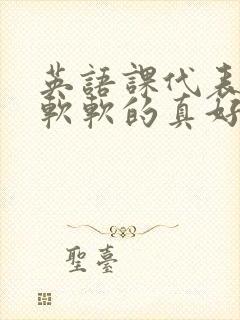 英語課代表
軟軟的真好
聖臺